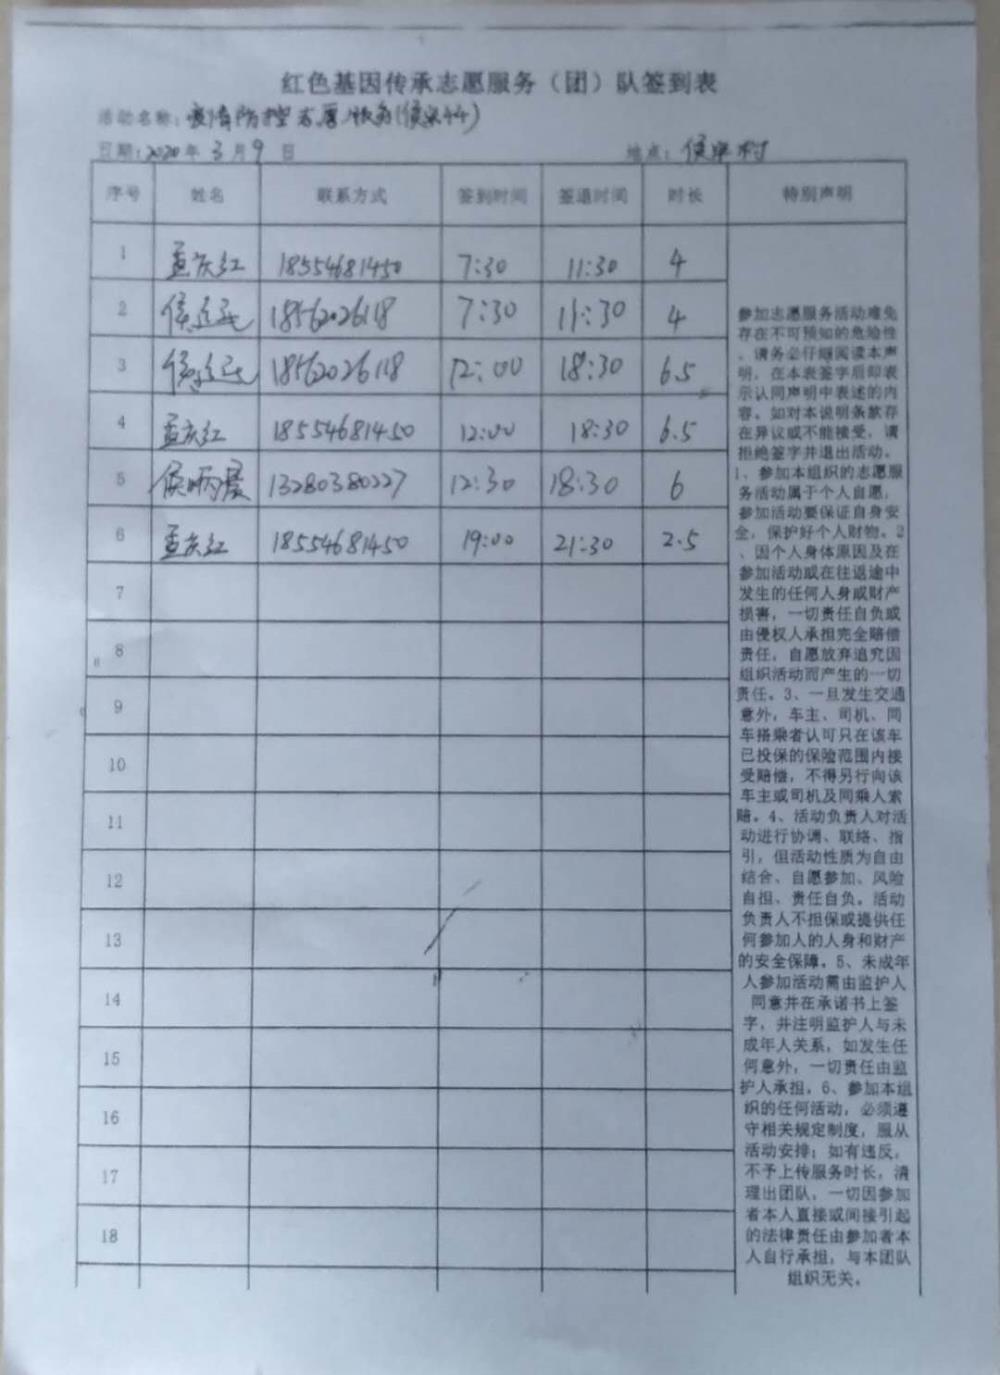 红色基因传承志愿服务（团）队签到表
活动名称：疫情防控志愿服务(侯家村)
日期：2020年 3月9日 地点：侯家村
序号 姓名 联系方式 签到时间 签退时间 时长 特别声明
1 孟庆红 18554681450 7:30 11:30 4
2 侯 18562026118 7:30 11:30 4
3 侯 18562026118 12:00 18:30 6.5
4 孟庆红 18554681450 12:00 18:30 6.5
5 侯炳晨 13280380227 12:30 18:30 6
6 孟庆红 18554681450 19:00 21:30 2.5
7
8
9
10
11
12
13
14
15
16
17
18
参加志愿服务活动难免
存在不可预知的危险性
，请务必仔细阅读本声
明，在本表签字后即表
示认同声明中表述的内
容。如对本说明条款存
在异议或不能接受，请
拒绝签字并退出活动。
1、参加本组织的志愿服
务活动属于个人自愿，
参加活动要保证自身安
全，保护好个人财物。2
、因个人身体原因及在
参加活动或在往返途中
发生的任何人身或财产
损害，一切责任自负或
由侵权人承担完全赔偿
责任，自愿放弃追究因
组织活动而产生的一切
责任。3、一旦发生交通
意外，车主、司机、同
车搭乘者认可只在该车
已投保的保险范围内接
受赔偿，不得另行向该
车主或司机及同乘人索
赔。4、活动负责人对活
动进行协调、联络、指
引，但活动性质为自由
结合、自愿参加、风险
自担、责任自负。活动
负责人不担保或提供任
何参加人的人身和财产
的安全保障。5、未成年
人参加活动需由监护人
同意并在承诺书上签
字，并注明监护人与未
成年人关系，如发生任
何意外，一切责任由监
护人承担。6、参加本组
织的任何活动，必须遵
守相关规定制度，服从
活动安排；如有违反，
不予上传服务时长，清
理出团队，一切因参加
者本人直接或间接引起
的法律责任由参加者本
人自行承担，与本团队
组织无关。